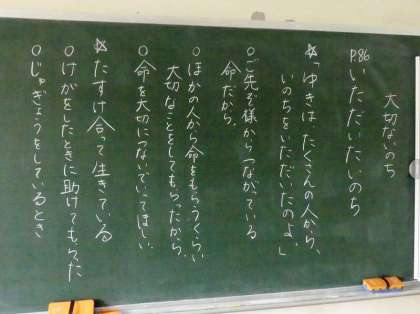 大切ないのち
P.86 いただいたいのち
☆「ゆきは、たくさんの人から、
いのちをいただいたのよ。」
○ご先ぞ様からつながっている
命だから。
○ほかの人から命をもらうくらい
大切なことをしてもらったから。
○命を大切につないでいってほしい。
☆たすけ合って生きている
○けがをしたときに助けてもらった
○じゅぎょうをしているとき